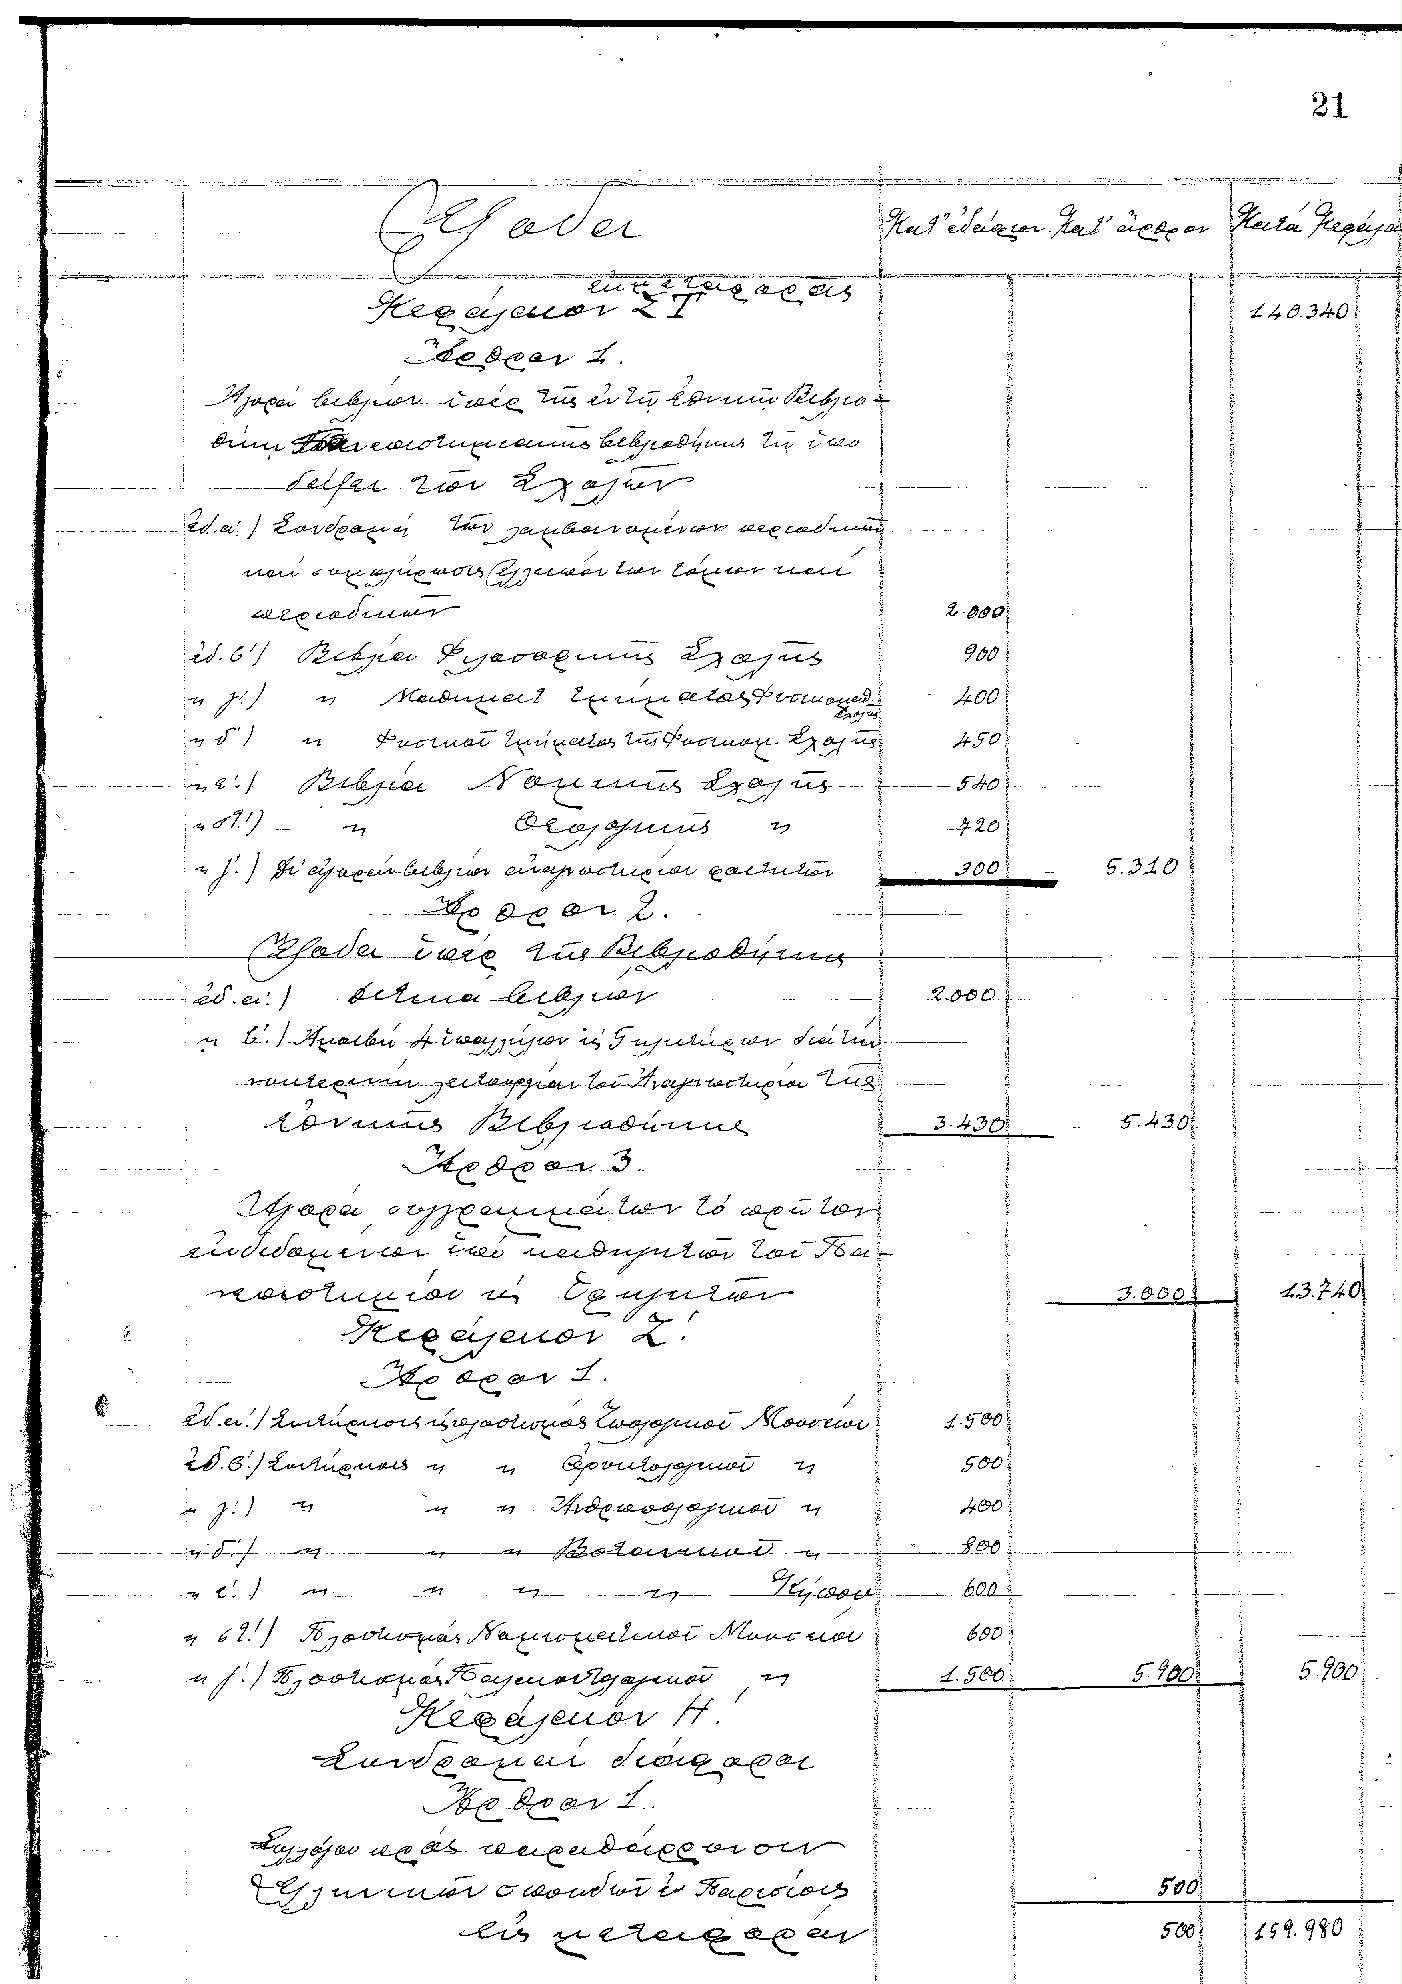 21
Ἔξοδα Κατ' ἐδάφιον Κατ' ἄρθρον Κατὰ Κεφάλα
ἐκ μεταφορᾶς
Κεφάλαιον ΣΤ 140.340
Ἄρθρον 1.
Ἀγορὰ βιβλίων ὑπὲρ τῆς ἐν τῇ ἐθνικῇ Βιβλιο-
θήκῃ Πανεπιστημιακῆς βιβλιοθήκης τῇ ὑπο
δείξει τῶν Σχολῶν
ἐδ. α΄.) Συνδρομὴ τῶν λαμβανομένων περιοδικῶν
καὶ συμπλήρωσις ἐλλειπόντων τόμων καὶ
περιοδικῶν 2.000
ἐδ. β΄) Βιβλία Φιλοσοφικῆς Σχολῆς 900
" γ΄.) " Μαθηματ τμήματος Φυσικομαθ. Σχολῆς 400
" δ΄) " Φυσικοῦ τμήματος τῆς Φυσικομ. Σχολῆς 450
" ε΄.) Βιβλία Νομικῆς Σχολῆς 540
" στ΄.) " Θεολογικῆς " 720
" ζ΄.) Δι' ἀγορὰν βιβλίων ἀναγνωστηρίου φοιτητῶν 300 5.310
Ἄρθρον 2.
Ἔξοδα ὑπὲρ τῆς Βιβλιοθήκης
ἐδ. α΄.) δετικὰ βιβλίων 2.000
" β΄.) Ἀμοιβὴ 4 ὑπαλλήλων κ 5 κλητήρων διὰ τὴν
νυκτερινὴν λειτουργίαν τοῦ Ἀναγνωστηρίου τῆς
ἐθνικῆς Βιβλιοθήκης 3.430 5.430
Ἄρθρον 3.
Ἀγορὰ συγγραμμάτων τὸ πρῶτον
ἐκδιδομένων ὑπὸ καθηγητῶν τοῦ Πα-
νεπιστημίου ἢ ὑφηγητῶν 3.000 13.740
Κεφάλαιον Ζ΄.
Ἄρθρον 1.
ἐδ. α΄.) Συντήρησις κ πλουτισμὸς Ζωολογικοῦ Μουσείου 1.500
ἐδ. β΄.) Συντήρησις " " Ὀρυκτολογικοῦ " 500
" γ΄.) " " " Ἀνθρωπολογικοῦ " 400
" δ΄.) " " " Βοτανικοῦ " 800
" ε΄.) " " " " Κήπου 600
" στ΄.) Πλουτισμὸς Νομισματικοῦ Μουσείου 600
" ζ΄.) Πλουτισμὸς Παλαιοντολογικοῦ " 1.500 5.900 5.900
Κεφάλαιον Η΄.
Συνδρομαὶ διάφοροι
Ἄρθρον 1.
Συλλόγου πρὸς παραθάρρυνσιν
Ἑλληνικῶν σπουδῶν ἐν Παρισίοις 500
Εἰς μεταφορὰν 500 159.980